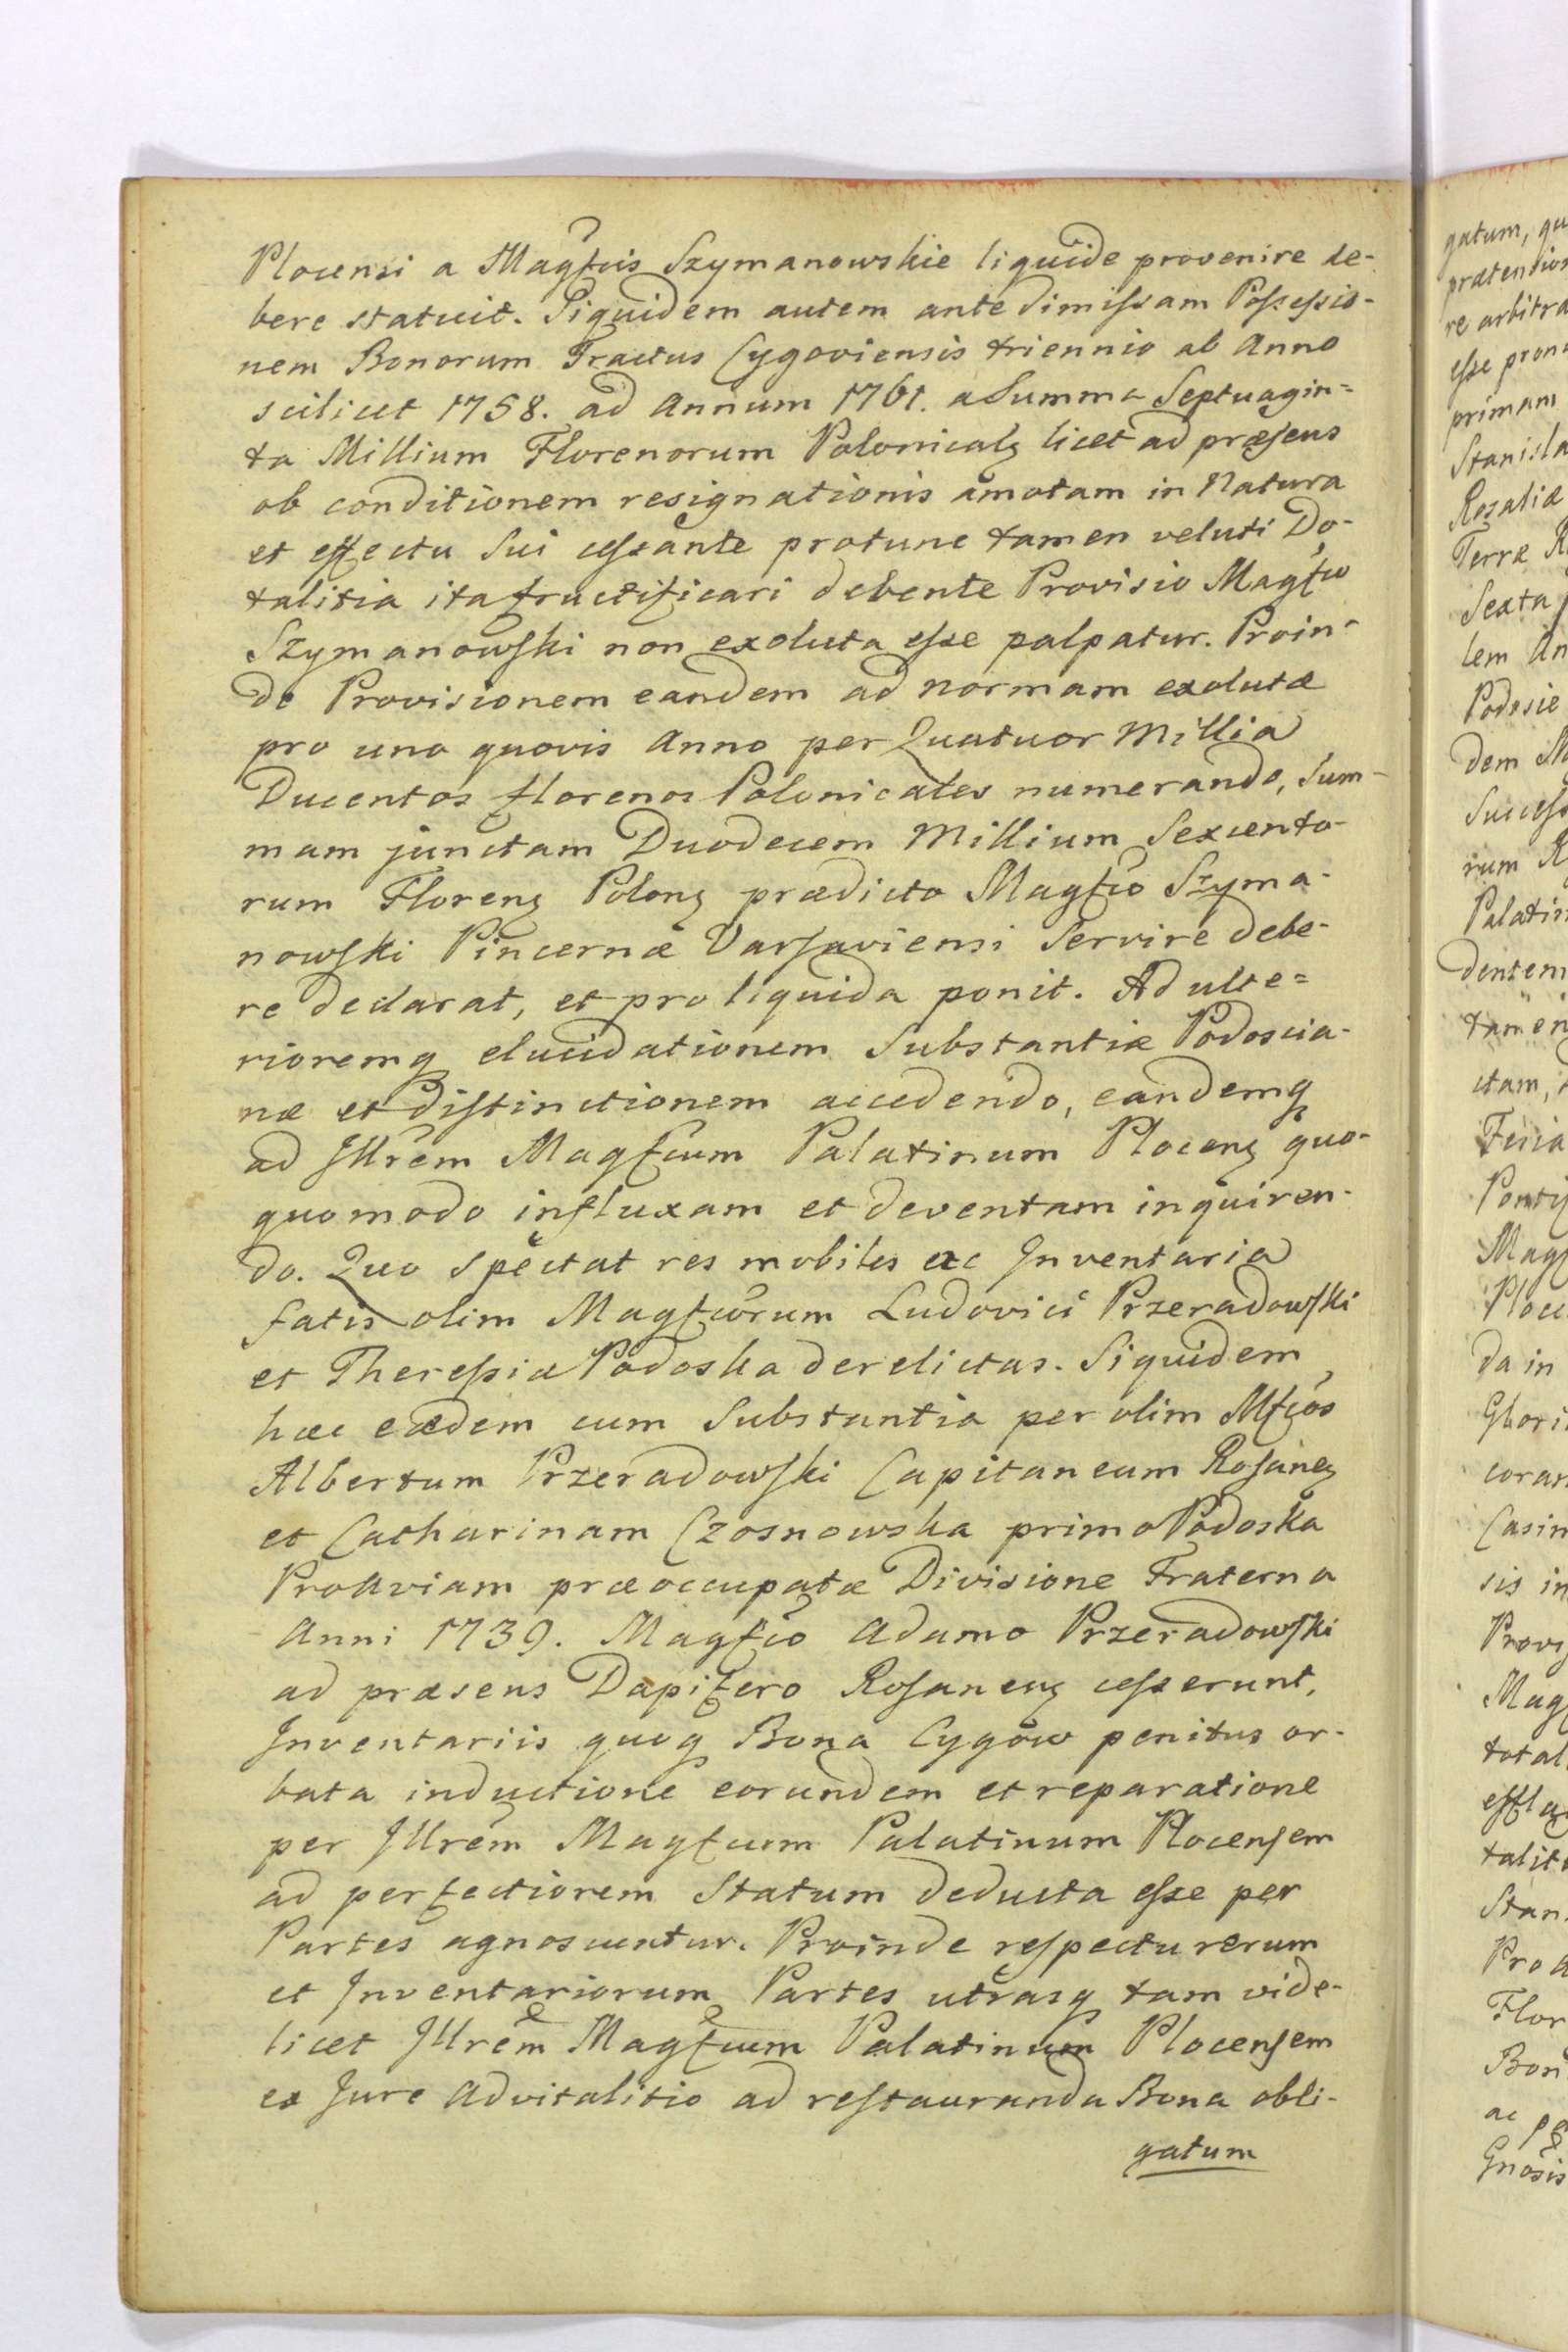 Plocensi a Magfcis Szymanowskie liquide provenire de-
bere statuit. Siquidem autem ante dimissam Possessio-
nem Bonorum Tractus Cygoviensis triennio ab Anno
scilicet 1758. ad Annum 1761. a Summa Septuagin=
ta Millium Florenorum Polonicalz licet ad præsens
ob conditionem resignationis amotam in Natura
et effectu Sui cessante protunc tamen veluti Do-
talitia ita fructificari debente Provisio Magfco
Szymanowski non exoluta esse palpatur. Proin-
de Provisionem eandem ad normam exolutæ
pro uno quovis Anno per Quatuor Millia
Ducentos florenos Polonicales numerando, Sum-
mam junctam Duodecem Millium Sexcento-
rum Florenz Polonz prædicto Magfco Szyma-
nowski Pincernæ Varsaviensi Servire debe-
re declarat, et pro liquida ponit. Ad ulte=
rioremq elucidationem Substantiæ Podoscia-
næ et distinctionem accedendo, eandemq
ad Jllrem Magfcum Palatinum Plocenz quo-
quomodo influxam et deventam inquiren-
do. Quo Spectat res mobiles ac Jnventaria
fatis olim Magfcorum Ludovici Przeradowski
et Theressiæ Podoska derelictas. Siquidem
hæc eædem cum Substantia per olim Mfcos
Albertum Przeradowski Capitaneum Rosanez
et Catharinam Czosnowska primo Podoska
ProAviam præoccupatæ Divisione Fraterna
Anni 1739. Magfco Adamo Przeradowski
ad præsens Dapifero Rosanenz cesserunt,
Jnventariis quoq Bona Cygow penitus or-
bata inductione eorundem et reparatione
per Jllrem Magfcum Palatinum Plocensem
ad perfectiorem Statum deducta esse per
Partes agnoscuntur. Proinde respectu rerum
et Jnventariorum Partes utrasq tam vide-
licet Jllrem Magfcum Palatinum Plocensem
ex Jure Advitalitio ad restauranda Bona obli-
gatum
gatum, qu
prætension
re arbitra
esse pron
primam
Stanisla
Rozaliæ
Terræ R
Sexta
lem An
Podosie
dem M
Success
rum R
Palatin
dentem
tamen
ctam,
Magf
Ploce
da in
Glori
coram
Casim
sis in
Provi
Mag
total
talit
Stan
Pro A
Flor
Bon
ac pe
Gnosis